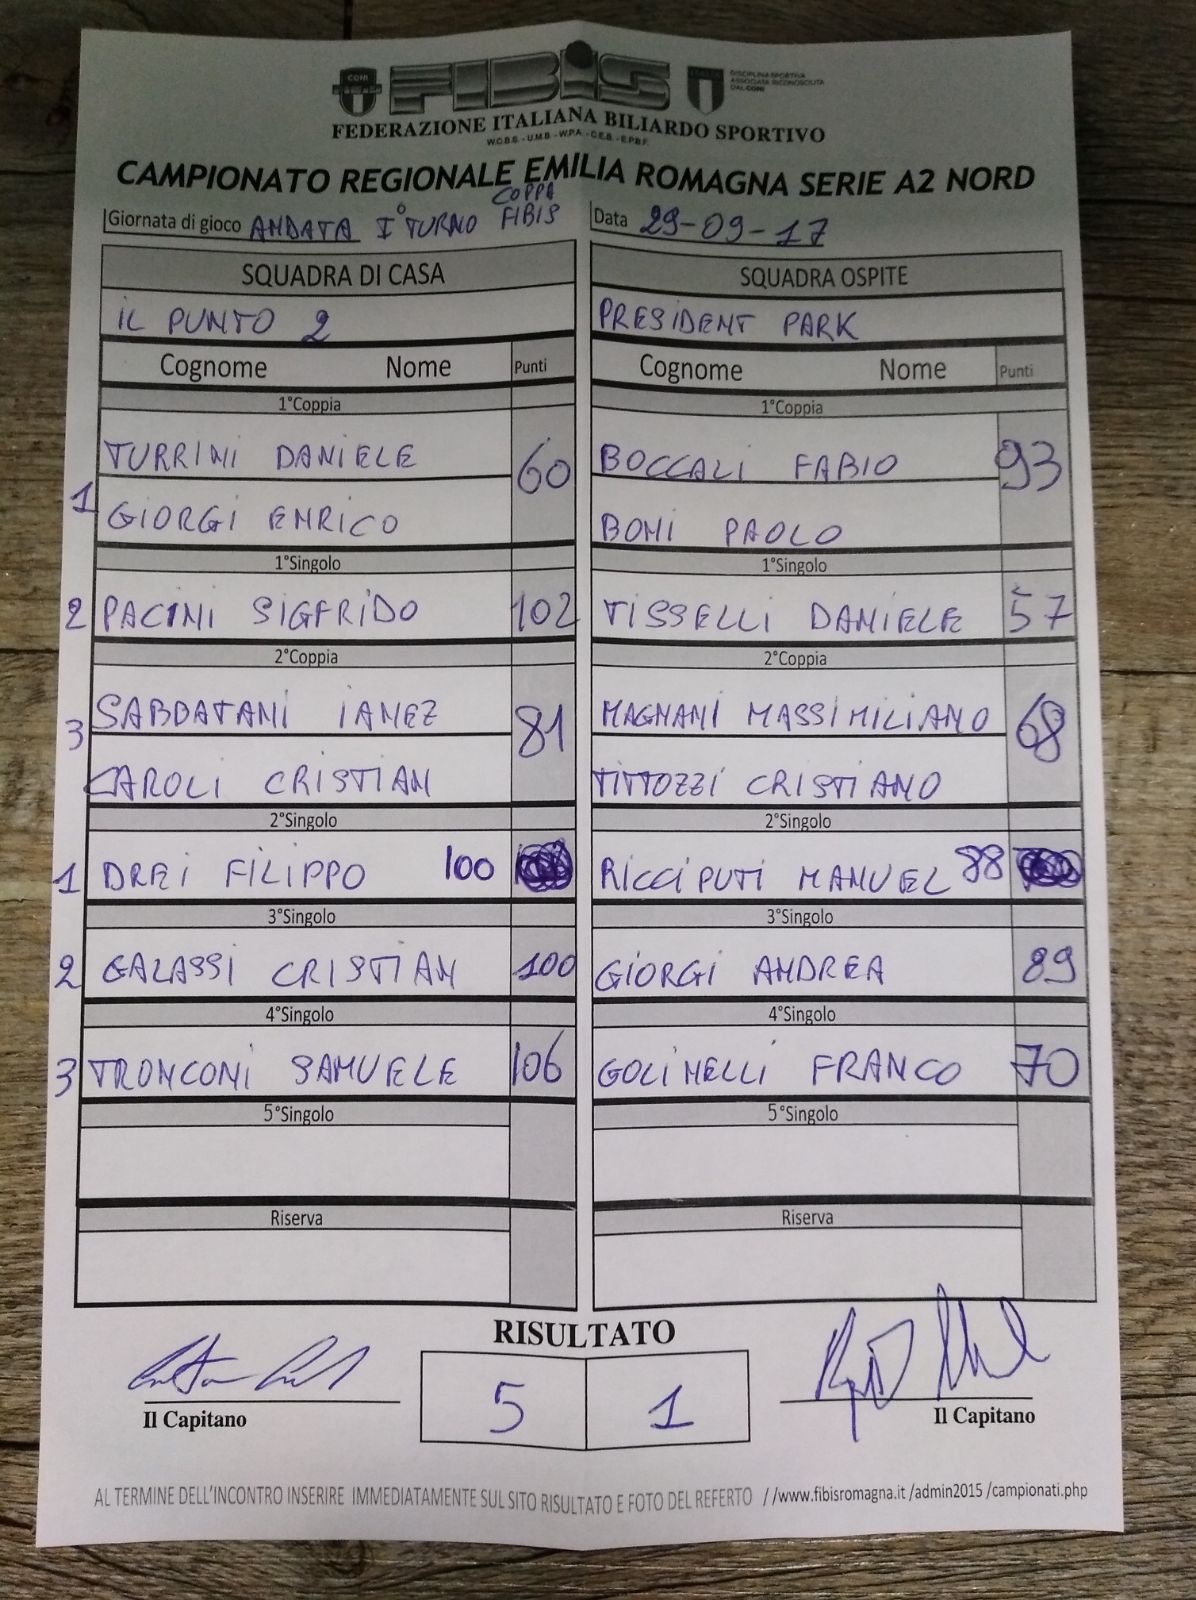 CONI
FIBIS
DISCIPLINA SPORTIVA
ASSOCIATA RICONOSCIUTA
DAL CONI
FEDERAZIONE ITALIANA BILIARDO SPORTIVO
W.C.B.S. - U.M.B. - W.P.A. - C.E.B. - E.P.B.F.
CAMPIONATO REGIONALE EMILIA ROMAGNA SERIE A2 NORD
Giornata di gioco ANDATA I° TURNO COPPA FIBIS Data 29-09-17
SQUADRA DI CASA SQUADRA OSPITE
IL PUNTO 2 PRESIDENT PARK
Cognome Nome Punti Cognome Nome Punti
1°Coppia 1°Coppia
TURRINI DANIELE 60 BOCCALI FABIO 93
1 GIORGI ENRICO BONI PAOLO
1°Singolo 1°Singolo
2 PACINI SIGFRIDO 102 TISSELLI DANIELE 57
2°Coppia 2°Coppia
3 SABDATANI IANEZ 81 MAGNANI MASSIMILIANO 68
CAROLI CRISTIAN TITTOZZI CRISTIANO
2°Singolo 2°Singolo
1 DREI FILIPPO 100 RICCIPUTI MANUEL 88
3°Singolo 3°Singolo
2 GALASSI CRISTIAN 100 GIORGI ANDREA 89
4°Singolo 4°Singolo
3 TRONCONI SAMUELE 106 GOLINELLI FRANCO 70
5°Singolo 5°Singolo
Riserva Riserva
RISULTATO
5 1
Il Capitano Il Capitano
AL TERMINE DELL'INCONTRO INSERIRE IMMEDIATAMENTE SUL SITO RISULTATO E FOTO DEL REFERTO //www.fibisromagna.it /admin2015 /campionati.php